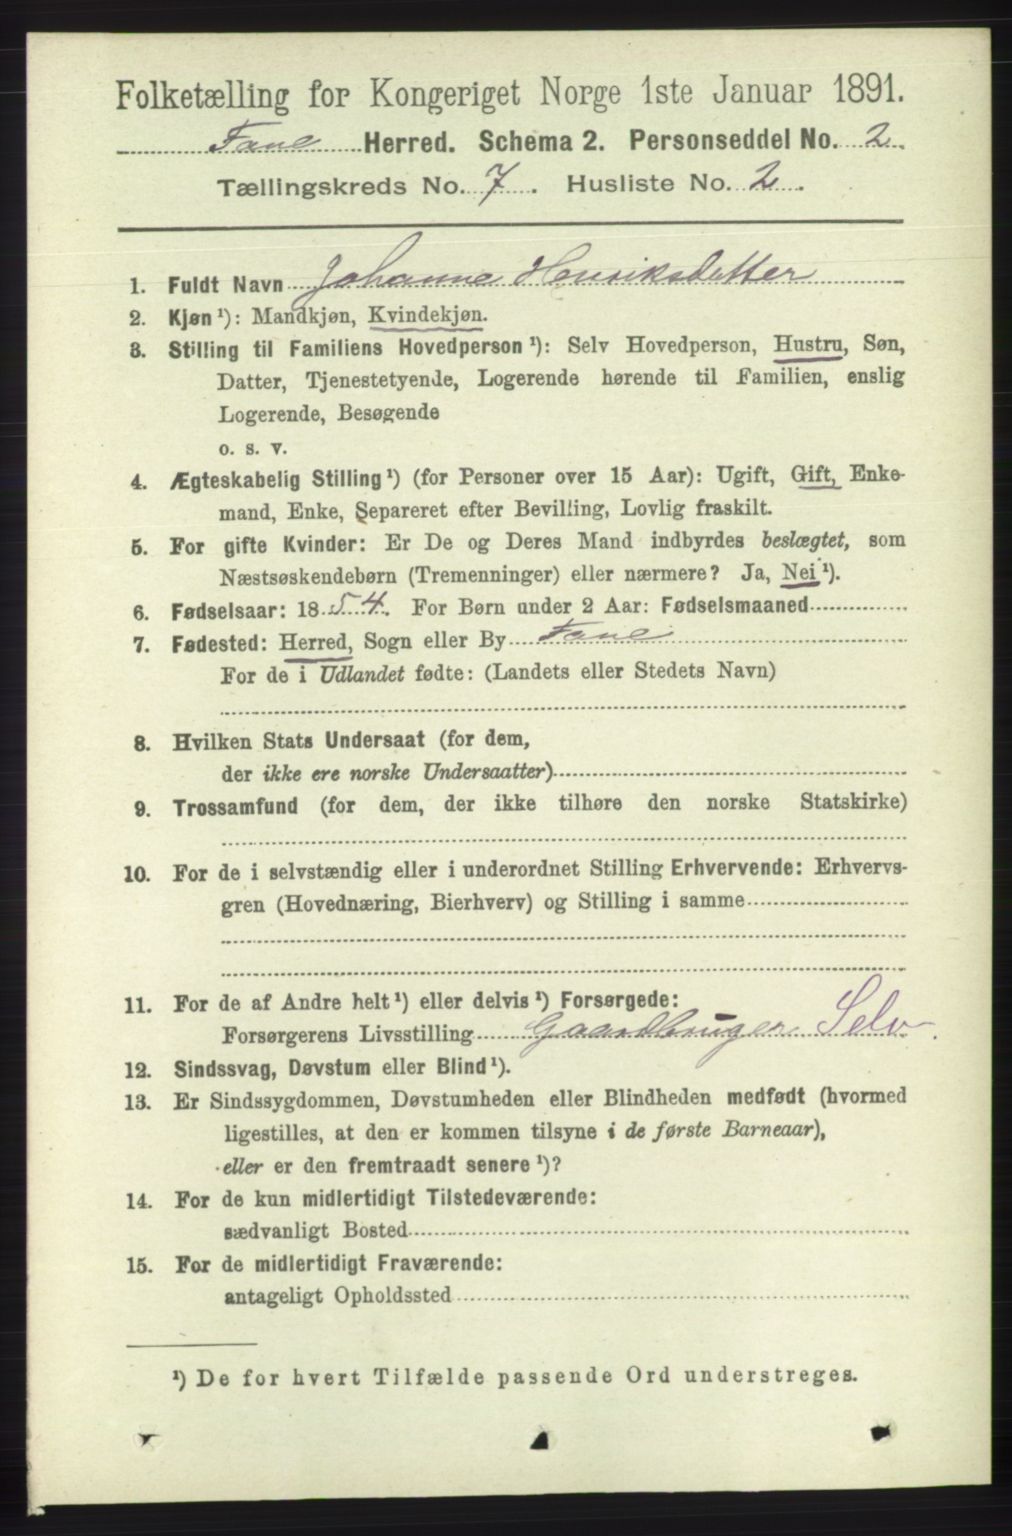 Folketælling for Kongeriget Norge 1ste Januar 1891.
Fane Herred. Schema 2. Personseddel No. 2.
Tællingskreds No. 7. Husliste No. 2.
1. Fuldt Navn Johanne Henriksdatter
2. Kjøn ¹): Mandkjøn, Kvindekjøn.
3. Stilling til Familiens Hovedperson ¹): Selv Hovedperson, Hustru, Søn,
Datter, Tjenestetyende, Logerende hørende til Familien, enslig
Logerende, Besøgende
o. s. v.
4. Ægteskabelig Stilling ¹) (for Personer over 15 Aar): Ugift, Gift, Enke-
mand, Enke, Separeret efter Bevilling, Lovlig fraskilt.
5. For gifte Kvinder: Er De og Deres Mand indbyrdes beslægtet, som
Næstsøskendebørn (Tremenninger) eller nærmere? Ja, Nei ¹).
6. Fødselsaar: 1854. For Børn under 2 Aar: Fødselsmaaned
7. Fødested: Herred, Sogn eller By Fane
For de i Udlandet fødte: (Landets eller Stedets Navn)
8. Hvilken Stats Undersaat (for dem,
der ikke ere norske Undersaatter)
9. Trossamfund (for dem, der ikke tilhøre den norske Statskirke)
10. For de i selvstændig eller i underordnet Stilling Erhvervende: Erhvervs-
gren (Hovednæring, Bierhverv) og Stilling i samme
11. For de af Andre helt ¹) eller delvis ¹) Forsørgede:
Forsørgerens Livsstilling Gaardbruger Selv
12. Sindssvag, Døvstum eller Blind ¹).
13. Er Sindssygdommen, Døvstumheden eller Blindheden medfødt (hvormed
ligestilles, at den er kommen tilsyne i de første Barneaar),
eller er den fremtraadt senere ¹)?
14. For de kun midlertidigt Tilstedeværende:
sædvanligt Bosted
15. For de midlertidigt Fraværende:
antageligt Opholdssted
¹) De for hvert Tilfælde passende Ord understreges.